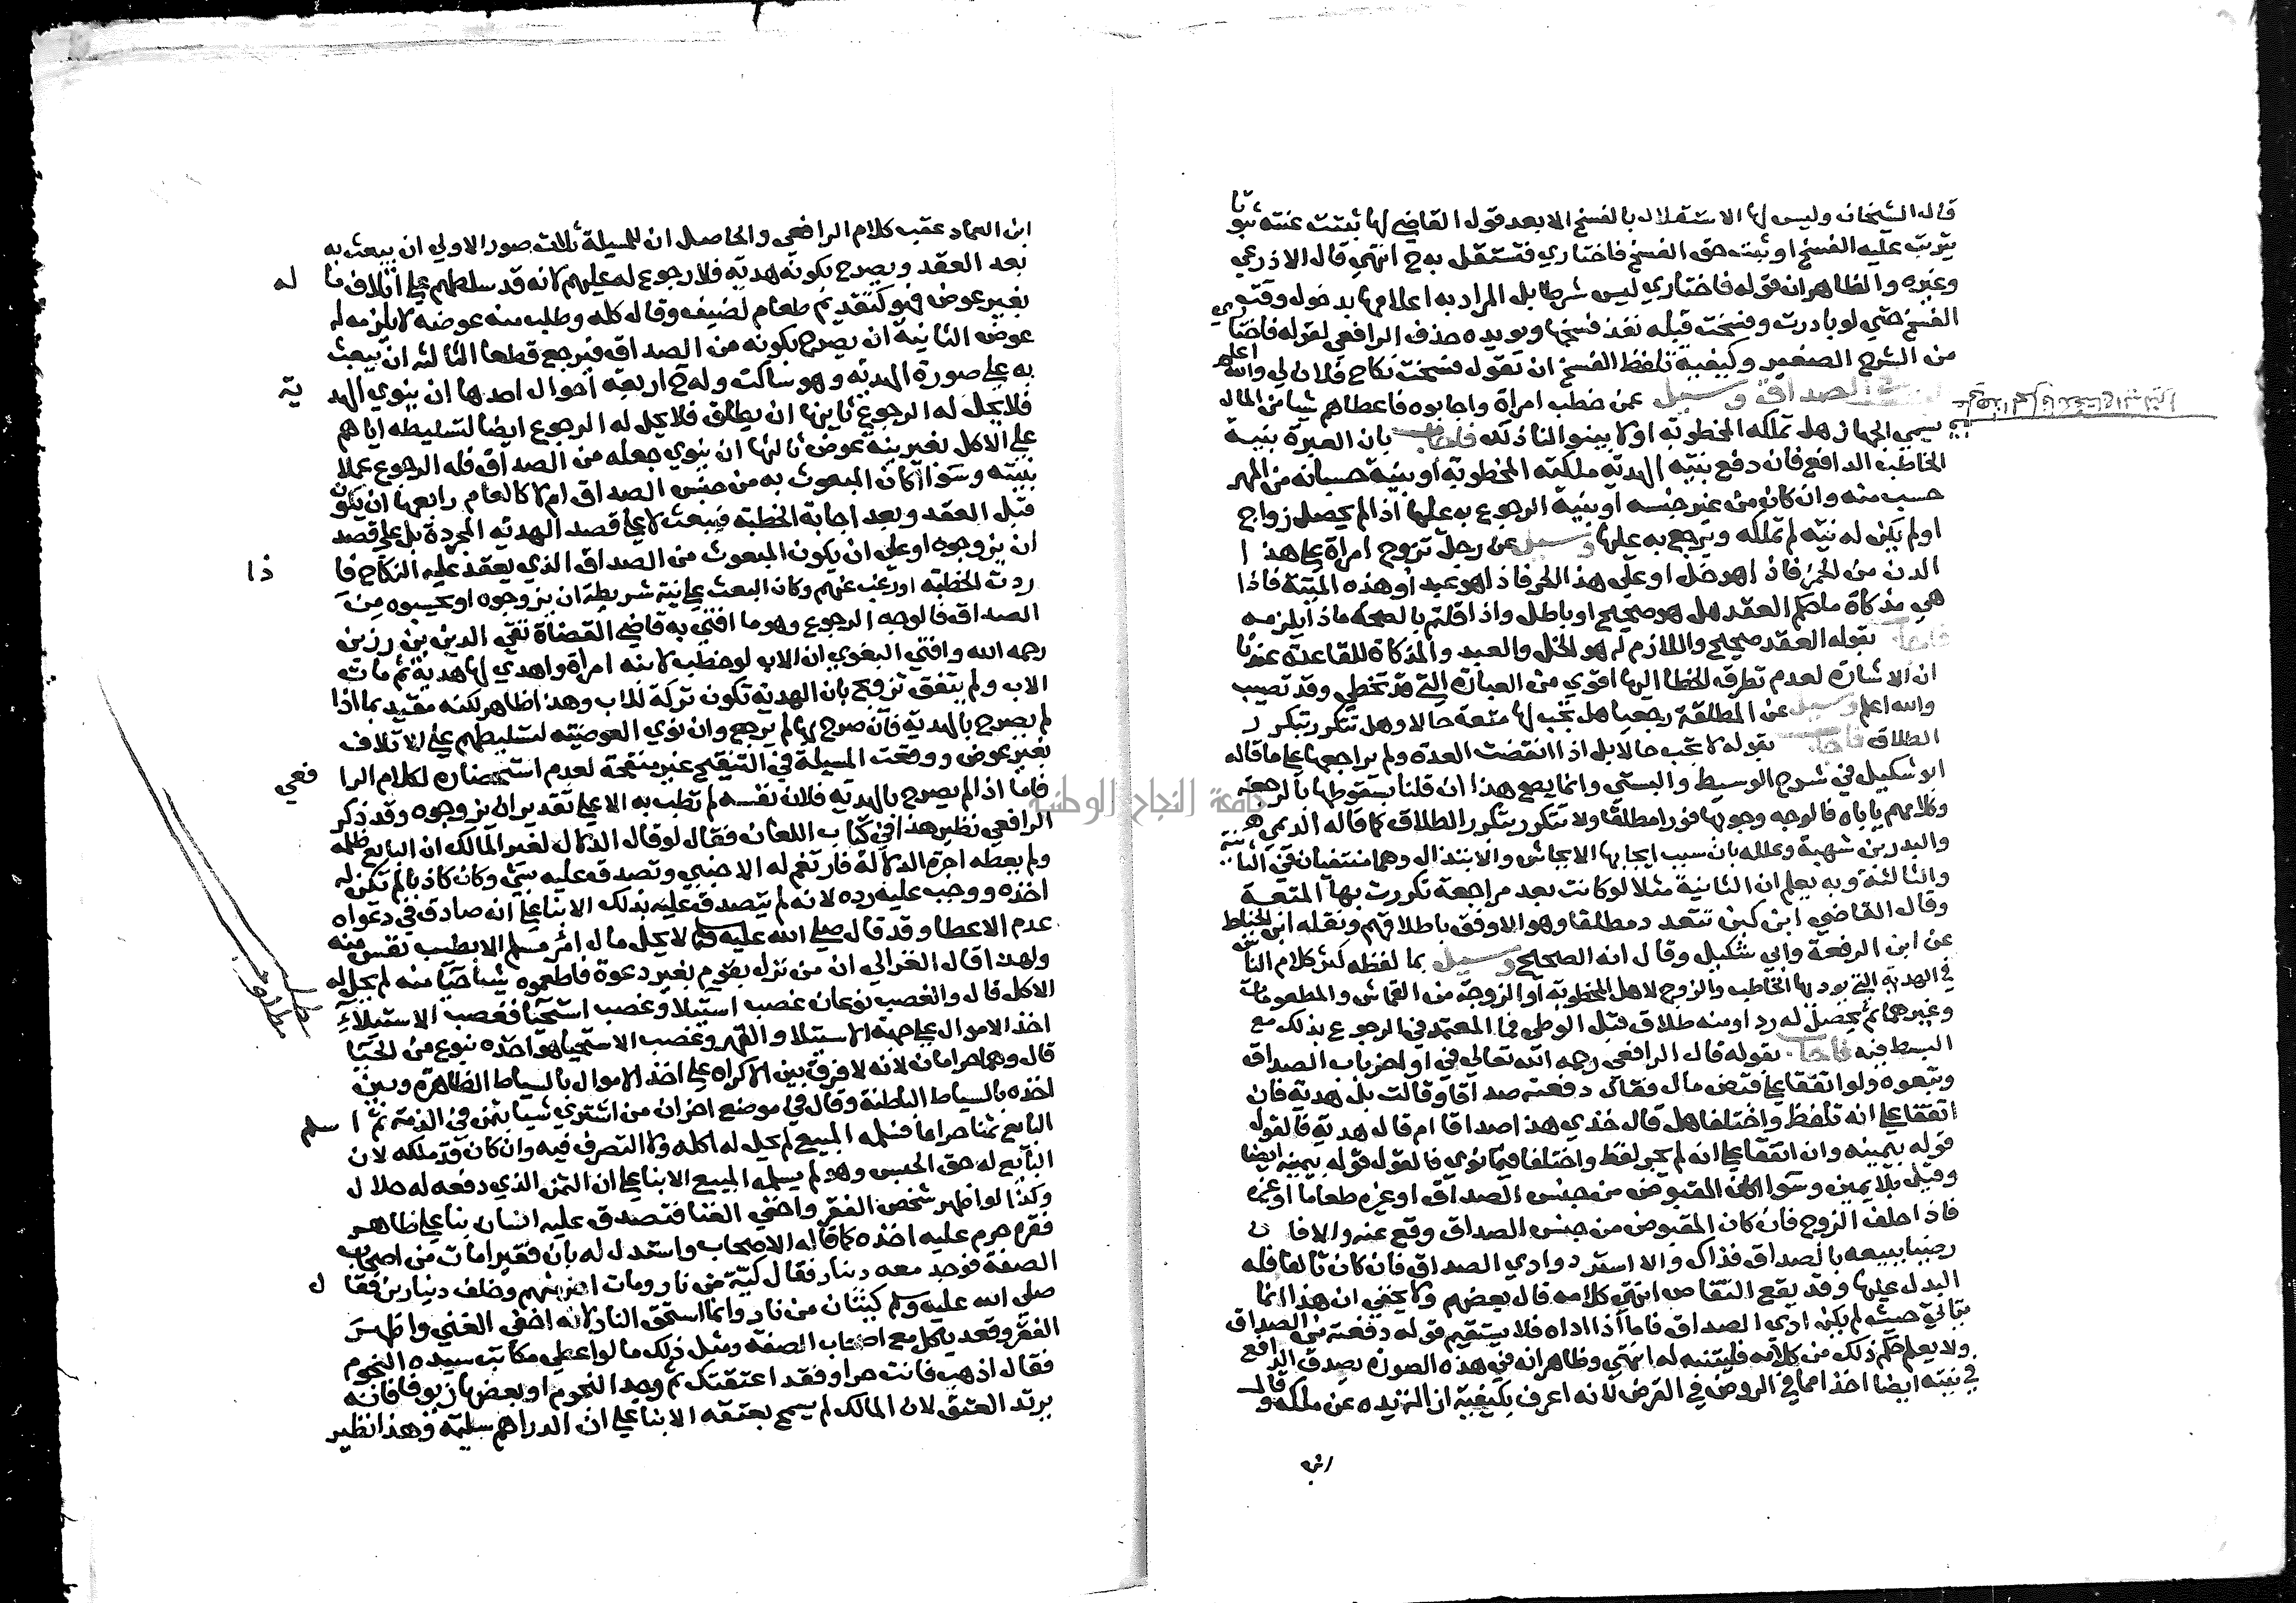 قال الشيخان وليس لها الاستقلال بالفسخ الا بعد قول القاضي لها ثبتت عنته ثبوتا
يترتب عليه الفسخ او ثبت حق الفسخ فاختاري فتستقل به ح انتهي قال الاذرعي
وغيره والظاهر ان قوله فاختاري ليس شرطا بل المراد به اعلامها بدخول وقت
الفسخ حتي لو بادرت وفسخت قبله نفذ فسخها ويويده حذف الرافعي لقوله فاختاري
من الشرح الصغير وكيفية تلفظ الفسخ ان تقول فسخت نكاح فلان لي والله اعلم
الصداق وسيل عمن خطب امراة واجابوه فاعطاهم شيا من المال
يسمي الجهاز هل تملكه المخطوبة او لا بينوا لنا ذلك فاجاب بان العبرة بنية
الخاطب الدافع فان دفع بنية الهدية ملكته المخطوبة او بنية حسبانه من المهر
حسب منه وان كان من غير جنسه او بنية الرجوع به عليها اذا لم يحصل زواج
او لم يكن له نية لم تملكه ويرجع به عليها وسيل عن رجل تزوج امراة علي هذا
الدن من الخمر فاذا هو خل او علي هذا الحر فاذا هو عبد او هذه الميتة فاذا
هي مذكاة ما حكم العقد هل هو صحيح او باطل واذا قلتم بالصحة ماذا يلزمه
فاجاب بقوله العقد صحيح واللازم له هو الخل والعبد والمذكاة للقاعدة عندنا
ان الاشارة لعدم تطرق الخطا اليها اقوي من العبارة التي قد تخطي وقد تصيب
والله اعلم وسيل عن المطلقة رجعيا هل تجب لها متعة حالا وهل تتكرر بتكرر
الطلاق فاجاب بقوله لا تجب حالا بل اذا انقضت العدة ولم يراجعها علي ما قاله
ابو شكيل في شرح الوسيط والبستي وانما يصح هذا ان قلنا بسقوطها بالرجعة
وكلامهم ياباه فالوجه وجوبها فورا مطلقا ولا تتكرر بتكرر الطلاق كما قاله الديمي هو
والبدر بن شهبة وعلله بان سبب ايجابها الايحاش والابتذال وهما منتفيان في الثانية
والثالثة وبه يعلم ان الثانية مثلا لو كانت بعد مراجعة تكررت بها المتعة
وقال القاضي ابن كبن تتعدد مطلقا وهو الاوفق باطلاقهم ونقله ابن الخياط
عن ابن الرفعة وابي شكيل وقال انه الصحيح وسيل بما لفظه كثر كلام الناس
في الهدية التي يوديها الخاطب والزوج لاهل المخطوبة او الزوجة من القماش والمطعومات
وغيرهما ثم يحصل له رد او منه طلاق قبل الوطي فما المعتمد في الرجوع بذلك مع
البسط فيه فاجاب بقوله قال الرافعي رحمه الله تعالي في اواخر باب الصداق
وتبعوه ولو اتفقا علي قبض مال فقال دفعته صداقا وقالت بل هدية فان
اتفقا علي انه تلفظ واختلفا هل قال خذي هذا صداقا ام قال هدية فالقول
قوله بيمينه وان اتفقا علي انه لم يجر لفظ واختلفا فيما نوي فالقول قوله بيمينه ايضا
وقيل بلا يمين وسوا اكان المقبوض من جنس الصداق او غيره طعاما او غيره
فاذا حلف الزوج فان كان المقبوض من جنس الصداق وقع عنه والا فان
رضيا ببيعه بالصداق فذاك والا استرد وادي الصداق فان كان تالفا فله
البدل عليها وقد يقع التقاص انتهي كلامه قال بعضهم ولا يخفي ان هذا انما
يتاتي حيث لم يكن ادي الصداق فاما اذا اداه فلا يستقيم قوله دفعته عن الصداق
ولا يعلم حكم ذلك من كلامه فليتنبه له انتهي وظاهر انه في هذه الصورة يصدق الدافع
في نيته ايضا اخذا مما في الروض في القرض لانه اعرف بكيفية ازالة يده عن ملكه وقال
ابن
ابن العماد عقب كلام الرافعي والحاصل ان للمسيلة ثلاث صور الاولي ان يبعث به
بعد العقد ويصرح بكونه هدية فلا رجوع له عليهم لانه قد سلطهم علي اتلاف ماله
بغير عوض فهو كتقديم طعام لضيف وقال كله وطلب منه عوضه لا يلزمه له
عوض الثانية ان يصرح بكونه من الصداق فيرجع قطعا الثالثة ان يبعث
به علي صورة الهدية وهو ساكت وله ح اربعة احوال احدها ان ينوي الهدية
فلا يحل له الرجوع ثانيها ان يطلق فلا يحل له الرجوع ايضا لتسليطه اياهم
علي الاكل بغير نية عوض ثالثها ان ينوي جعله من الصداق فله الرجوع عملا
بنيته وسوا اكان المبعوث به من جنس الصداق ام لا كالطعام رابعها ان يكون
قبل العقد وبعد اجابة الخطبة فيبعث لا علي قصد الهدية المجردة بل علي قصد
ان يزوجوه او علي ان يكون المبعوث من الصداق الذي يعقد عليه النكاح فاذا
ردت الخطبة او رغب عنهم وكان البعث علي نية شريطة ان يزوجوه او يحسبوه من
الصداق فالوجه الرجوع وهو ما افتي به قاضي القضاة تقي الدين بن رزين
رحمه الله وافتي البغوي ان الاب لو خطب لابنه امراة واهدي لها هدية ثم مات
الاب ولم يتفق تزويج بان الهدية تكون تركة للاب وهذا ظاهر لكنه مقيد بما اذا
لم يصرح بالهدية فان صرح بها لم يرجع وان نوي العوضية لتسليطهم علي الاتلاف
بغير عوض ووقعت المسيلة في التنقيح غير منقحة لعدم استحضاره لكلام الرافعي
فاما اذا لم يصرح بالهدية فلان نفسه لم تطب به الا علي تقدير ان يزوجوه وقد ذكر
الرافعي نظير هذا في كتاب اللعان فقال لو قال الدلال لغير المالك ان البايع ظلمه
ولم يعطه اجرة الدلالة فارتغم له الاجنبي وتصدق عليه بشي وكان كاذبا لم تكن له
اخذه ووجب عليه رده لانه لم يتصدق عليه بذلك الا بنا علي انه صادق في دعواه
عدم الاعطا وقد قال صلي الله عليه وسلم لا يحل مال امرئ مسلم الا بطيب نفس منه
ولهذا قال الغزالي ان من نزل بقوم بغير دعوة فاطعموه شيا حيا منه لم يحل له
الاكل قال والغصب نوعان غصب استيلا وغصب استحيا فغصب الاستيلا
اخذ الاموال علي جهة الاستيلا والقهر وغصب الاستحيا هو اخذه بنوع من الحيا
قال وهما حرامان لانه لا فرق بين الاكراه علي اخذ الاموال بالسياط الظاهرة وبين
اخذه بالسياط الباطنة وقال في موضع اخر ان من اشتري شيا بثمن في الذمة ثم اسلم
البايع ثمنا حراما فسلمه المبيع لم يحل له اكله ولا التصرف فيه وان كان قد ملكه لان
البايع له حق الحبس وهو لم يسلمه المبيع الا بنا علي ان الثمن الذي دفعه له حلال
وكذا لو اظهر شخص الفقر واخفي الغنا فتصدق عليه انسان بنا علي ظاهر
فقره حرم عليه اخذه كما قاله الاصحاب واستدل له بان فقيرا مات من اصحاب
الصفة فوجد معه دينار فقال كية من نار ومات اخر منهم وخلف دينارين فقال
صلي الله عليه وسلم كيتان من نار وانما استحق النار لانه اخفي الغني واظهر
الفقر وقعد ياكل مع اصحاب الصفة ومثل ذلك ما لو اعطي مكاتب سيده النجوم
فقال اذهب فانت حر او فقد اعتقتك ثم وجد النجوم او بعضها زيوفا فانه
يرتد العتق لان المالك لم يسمح بعتقه الا بنا علي ان الدراهم سليمة وهذا نظير
جامعة النجاح الوطنية